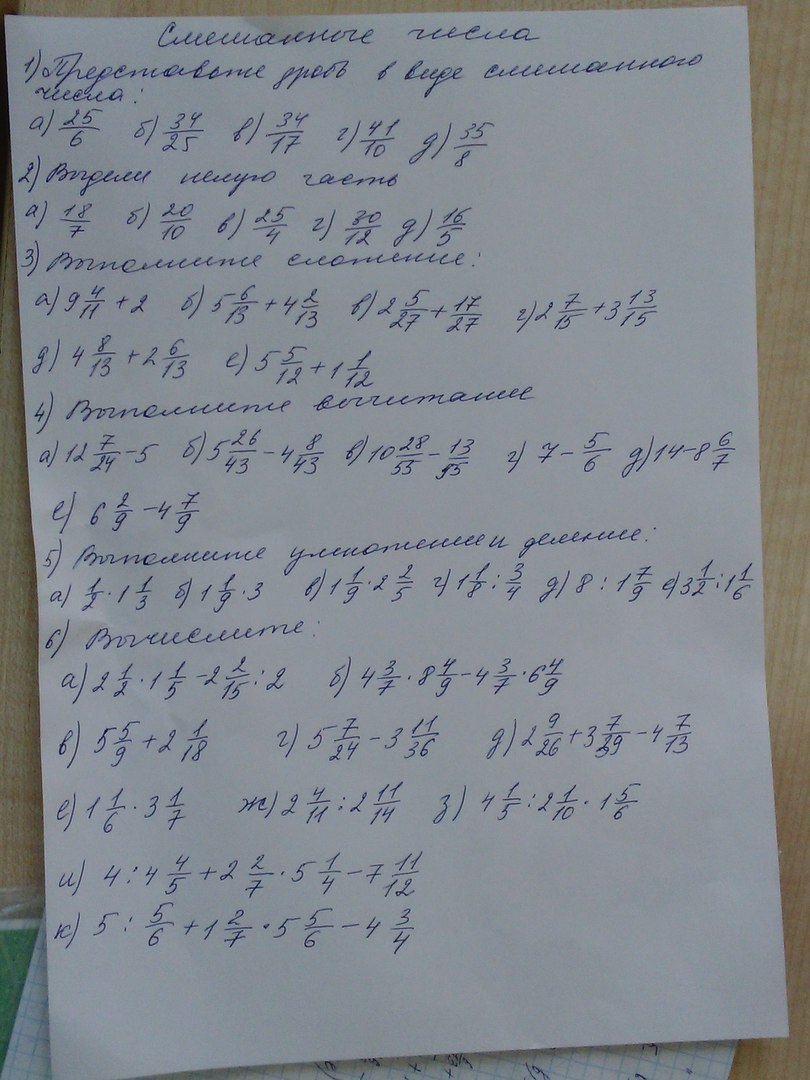 Смешанные числа
1) Представьте дробь в виде смешанного
числа:
а) 25/6 б) 34/25 в) 34/17 г) 41/10 д) 35/8
2) Выдели целую часть
а) 18/7 б) 20/10 в) 25/4 г) 30/12 д) 16/5
3) Выполните сложение:
а) 9 4/11 + 2 б) 5 6/13 + 4 2/13 в) 2 5/27 + 17/27 г) 2 7/15 + 3 13/15
д) 4 8/13 + 2 6/13 е) 5 5/12 + 1 1/12
4) Выполните вычитание
а) 12 7/24 - 5 б) 5 26/43 - 4 8/43 в) 10 28/55 - 13/55 г) 7 - 5/6 д) 14 - 8 6/7
е) 6 2/9 - 4 7/9
5) Выполните умножение и деление:
а) 1/2 · 1 1/3 б) 1 1/9 · 3 в) 1 1/9 · 2 2/5 г) 1 1/8 : 3/4 д) 8 : 1 7/9 е) 3 1/2 : 1 1/6
6) Вычислите:
а) 2 1/2 · 1 1/5 - 2 2/15 : 2 б) 4 3/7 · 8 4/9 - 4 3/7 · 6 4/9
в) 5 5/9 + 2 1/18 г) 5 7/24 - 3 11/36 д) 2 9/26 + 3 7/39 - 4 7/13
е) 1 1/6 · 3 1/7 ж) 2 4/11 : 2 11/14 з) 4 1/5 : 2 1/10 · 1 5/6
и) 4 : 4 4/5 + 2 2/7 · 5 1/4 - 7 11/12
к) 5 : 5/6 + 1 2/7 · 5 5/6 - 4 3/4